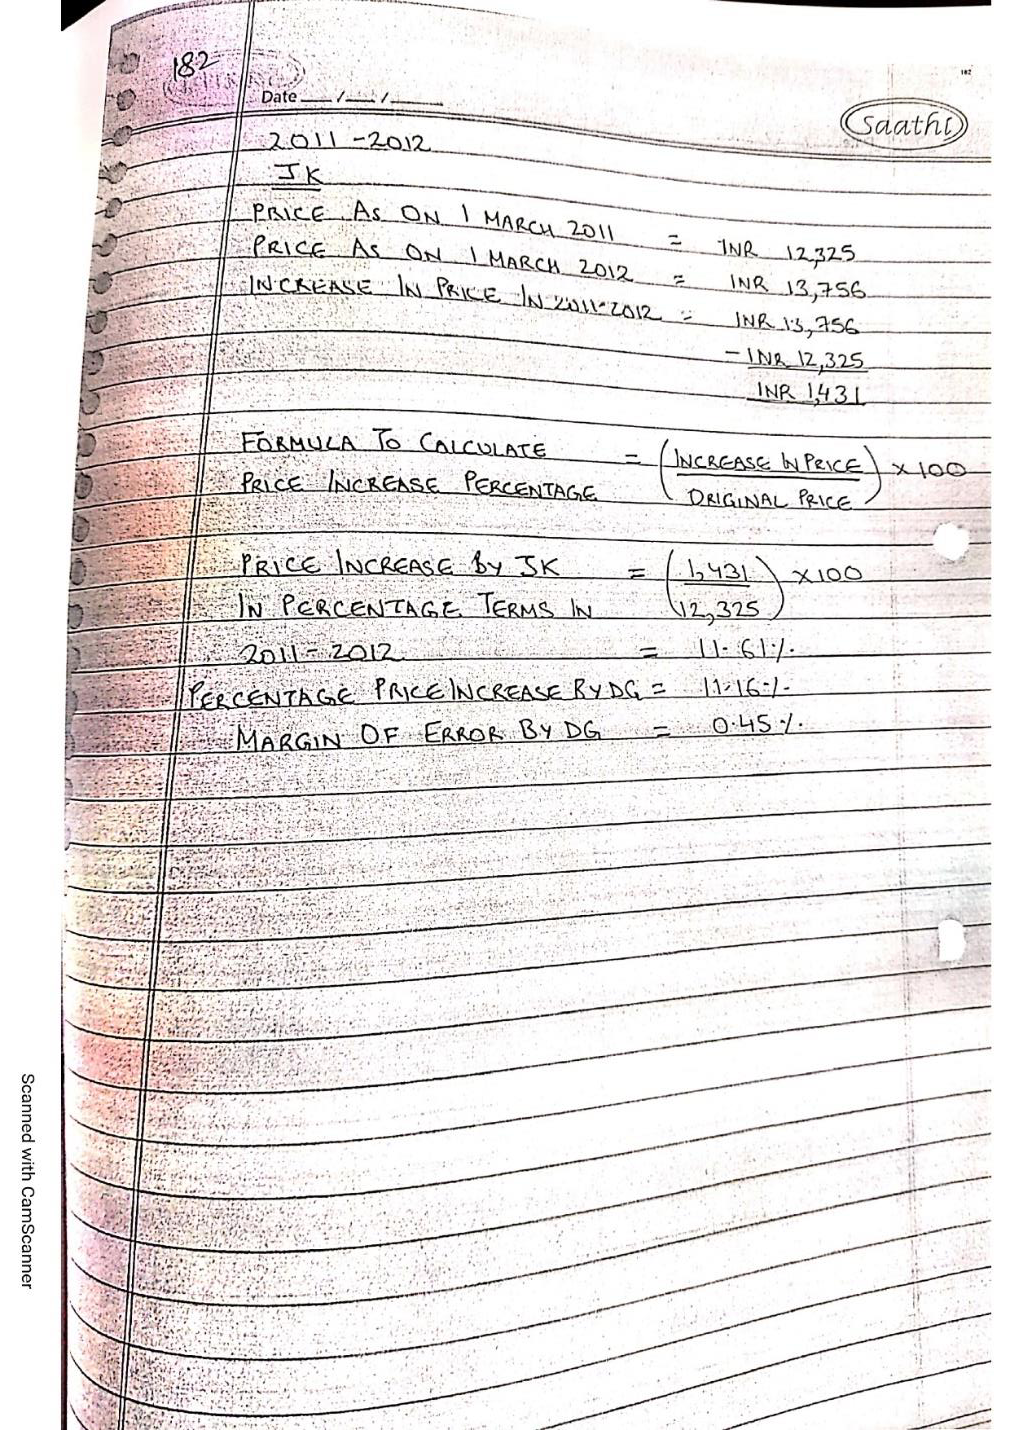 182
182
Date __/__/____
Saathi
2011-2012
JK
PRICE AS ON 1 MARCH 2011 = INR 12,325
PRICE AS ON 1 MARCH 2012 = INR 13,756
INCREASE IN PRICE IN 2011-2012 = INR 13,756
- INR 12,325
INR 1,431
FORMULA TO CALCULATE = (INCREASE IN PRICE) × 100
PRICE INCREASE PERCENTAGE ORIGINAL PRICE
PRICE INCREASE BY JK = (1,431) × 100
IN PERCENTAGE TERMS IN 12,325
2011-2012 = 11.61%
PERCENTAGE PRICE INCREASE BY DG = 11.16%
MARGIN OF ERROR BY DG = 0.45%
Scanned with CamScanner